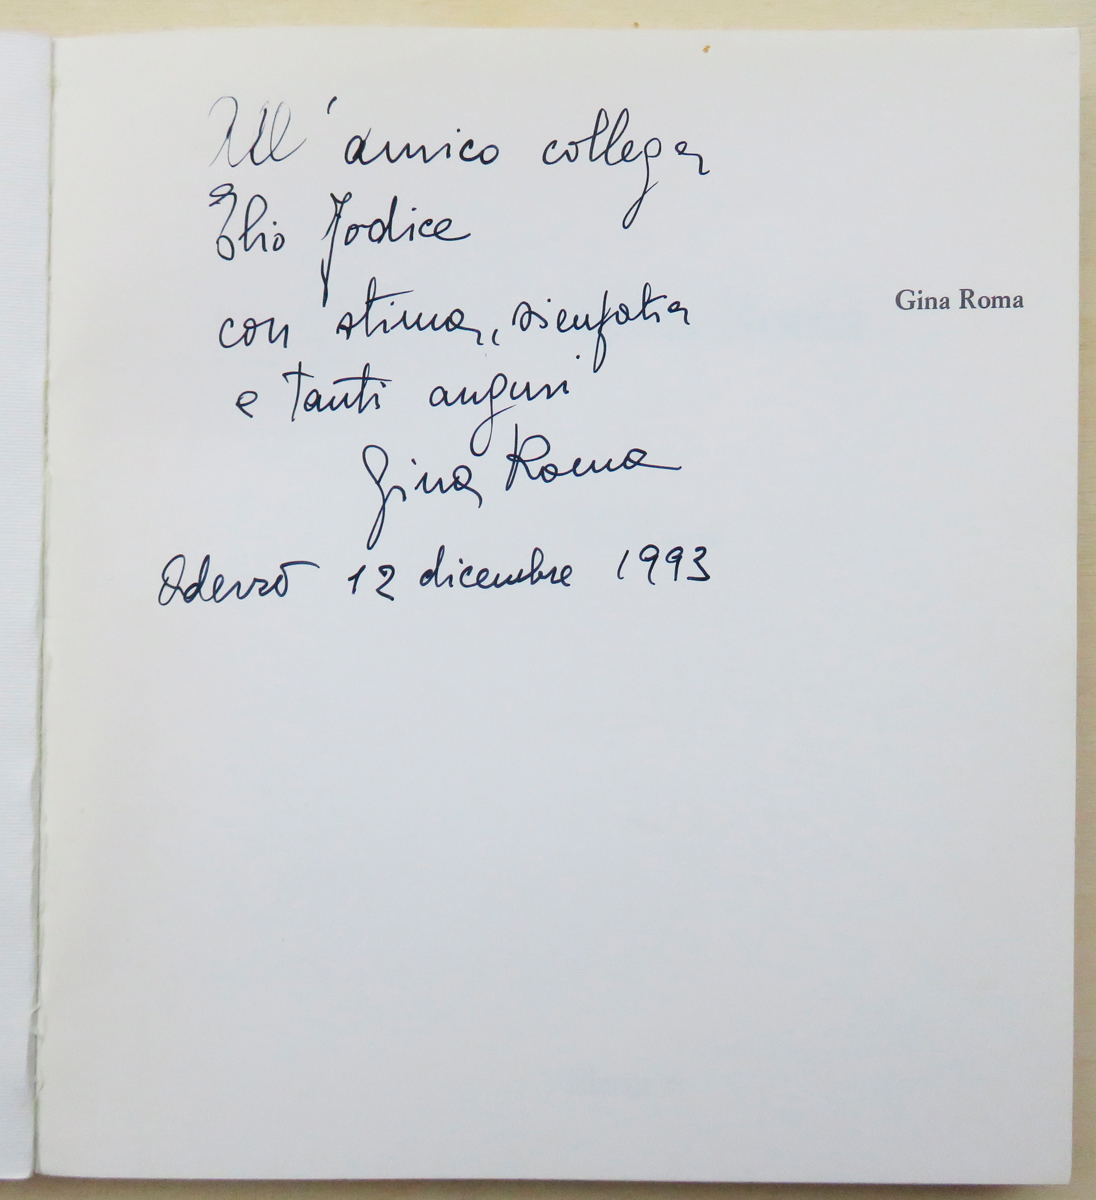 All'amico collega
Elio Jodice
Gina Roma
con stima, simpatia
e tanti auguri
Gina Roma
Oderzo 12 dicembre 1993